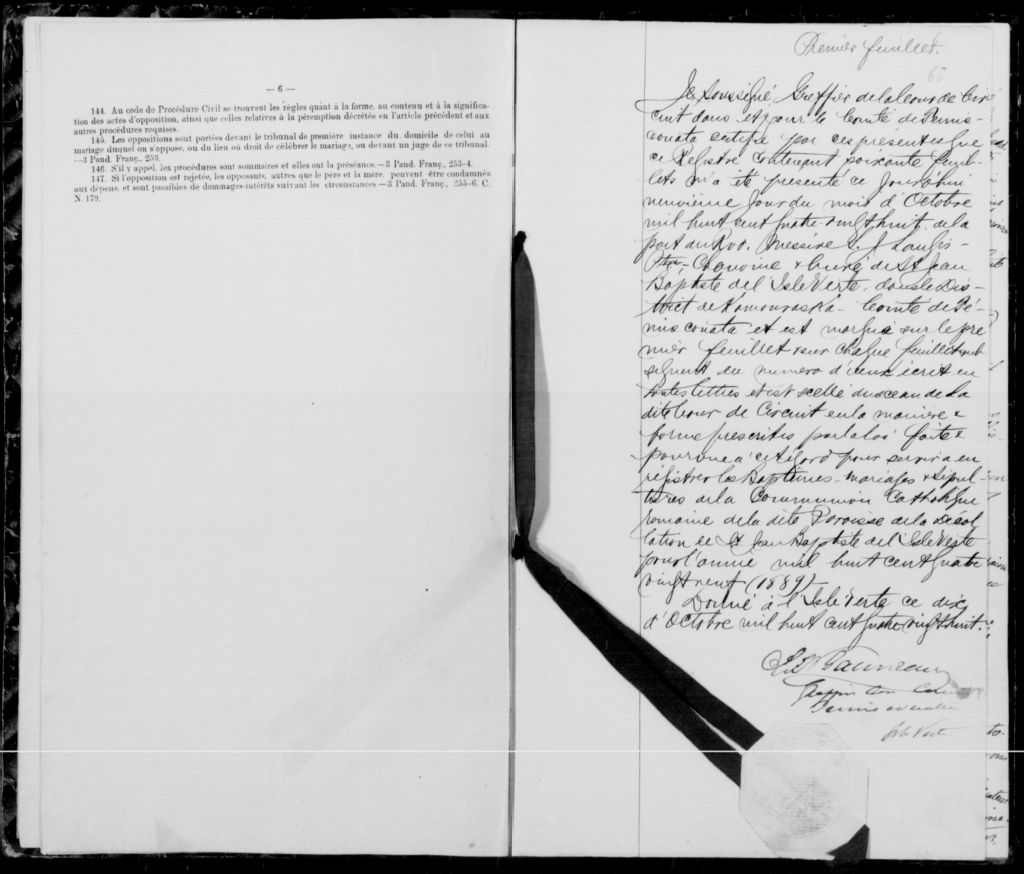 — 6 —
144. Au code de Procédure Civil se trouvent les règles quant à la forme, au contenu et à la significa-
tion des actes d'opposition, ainsi que celles relatives à la péremption décrétée en l'article précédent et aux
autres procédures requises.
145. Les oppositions sont portées devant le tribunal de première instance du domicile de celui au
mariage duquel on s'oppose, ou du lieu où droit de célébrer le mariage, ou devant un juge de ce tribunal.
—3 Pand. Franç., 253.
146. S'il y appel, les procédures sont sommaires et elles ont la préséance.—3 Pand. Franç., 253-4.
147. Si l'opposition est rejetée, les opposants, autres que le père et la mère, peuvent être condamnés
aux dépens, et sont passibles de dommages-intérêts suivant les circonstances.—3 Pand. Franç., 255-6. C.
N. 179.
Premier feuillet.
60
Je, Soussigné, Greffier de la Cour de Cir
cuit dans et pour le Comté de Témis-
couata certifie par ces présentes que
ce Registre contenant soixante feuil-
lets m'a été présenté ce Jourd'hui
neuvième Jour du mois d'Octobre
mil huit cent quatre-vingt huit, de la
part du Rvd. Messire L. J. Langis -
Ptre, - Chanoine & Curé de St Jean
Baptiste de l'Isle Verte, dans le Dis-
trict de Kamouraska - Comté de Té-
miscouata et est marqué sur le pre
mier feuillet & sur chaque feuillet sub
séquent du numero d'iceux écrit en
toutes lettres et est scellé du sceau de la
dite Cour de Circuit en la manière &
forme prescrites par la loi faite &
pourvue à cet égard pour servir à en
régistrer les Baptêmes - mariages & sépul-
tures de la Communion Catholique
romaine de la dite Paroisse de la Décol
lation de St Jean Baptiste de l'Isle Verte
pour l'année mil huit cent quatre
vingt neuf (1889) -
Donné à l'Isle Verte ce dix
d'Octobre mil huit cent quatre vingt huit.
Greffier Cour Circuit
Témiscouata
Isle Verte